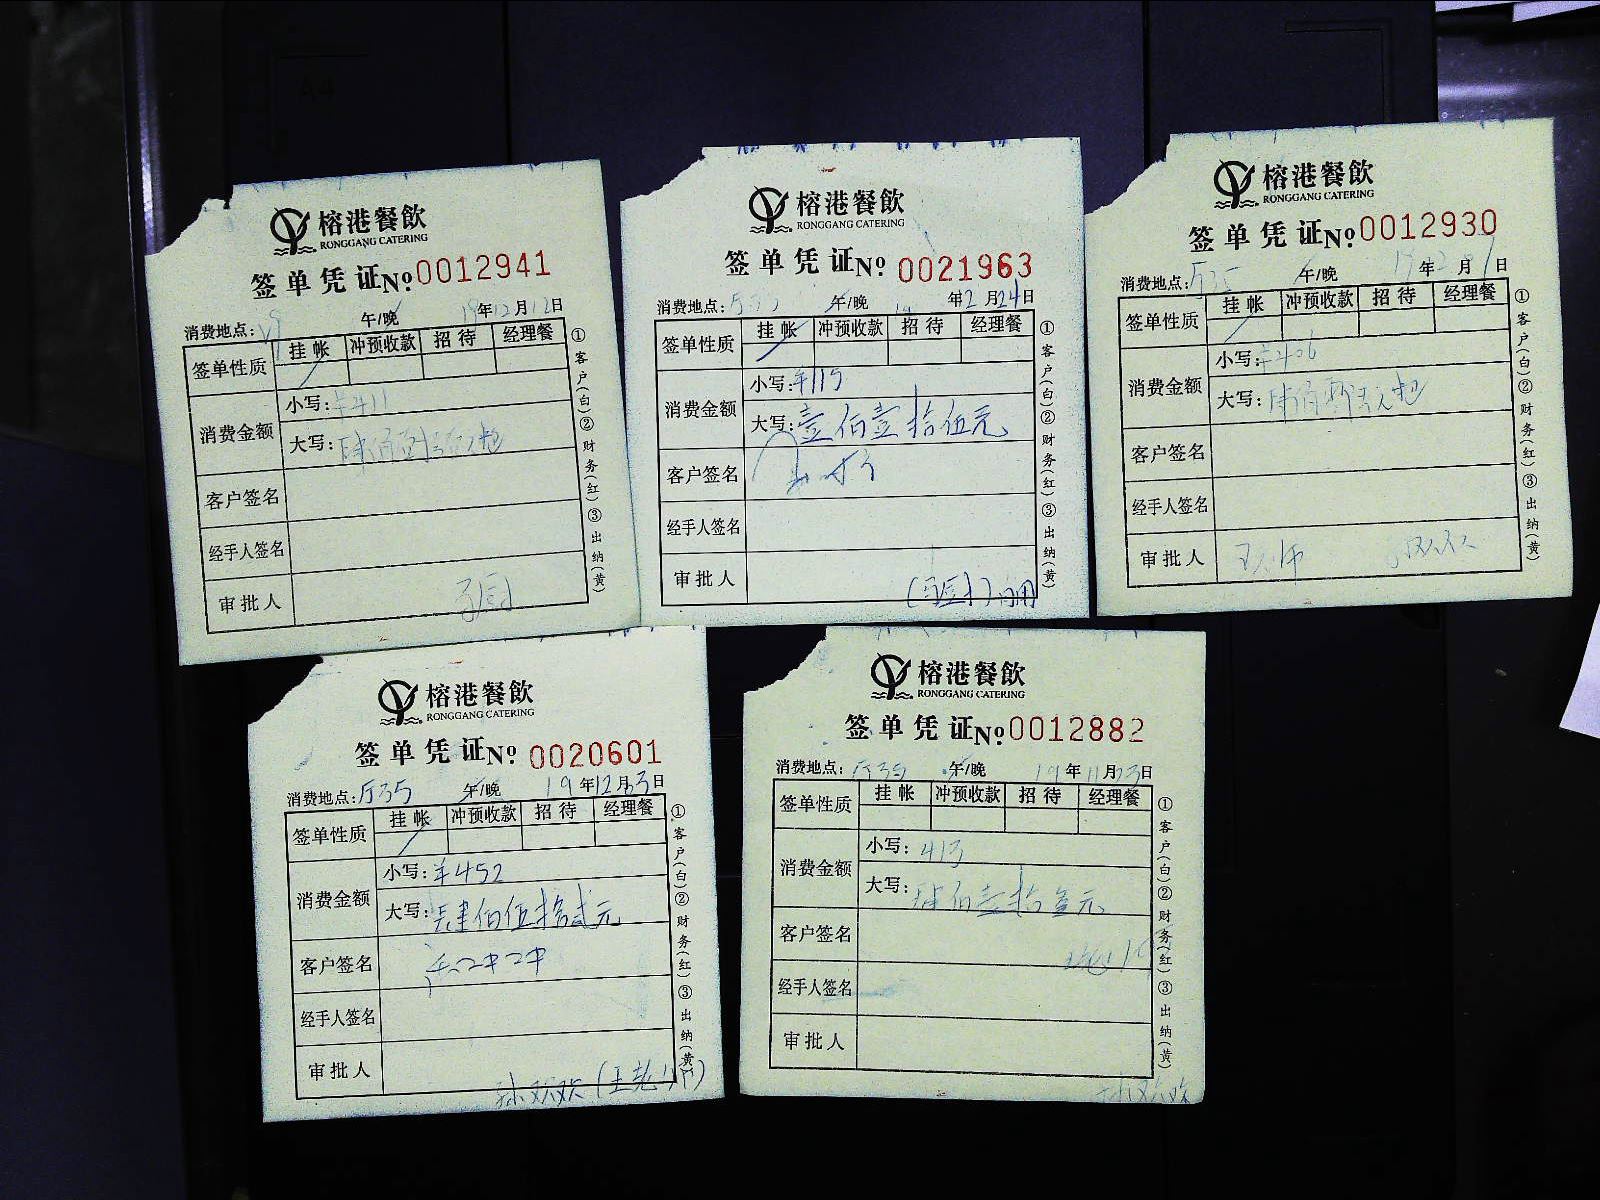 榕港餐飲
RONGGANG CATERING
签单凭证№0012941
消费地点: 午/晚 19年12月12日
签单性质 挂帐 冲预收款 招待 经理餐
消费金额 小写:¥411
大写:肆佰壹拾壹元
客户签名
经手人签名
审批人
①客户(白)②财务(红)③出纳(黄)
榕港餐飲
RONGGANG CATERING
签单凭证№0021963
消费地点: 午/晚 年2月24日
签单性质 挂帐 冲预收款 招待 经理餐
消费金额 小写:¥115
大写:壹佰壹拾伍元
客户签名
经手人签名
审批人
①客户(白)②财务(红)③出纳(黄)
榕港餐飲
RONGGANG CATERING
签单凭证№0012930
消费地点: 午/晚 年 月 日
签单性质 挂帐 冲预收款 招待 经理餐
消费金额 小写:¥406
大写:
客户签名
经手人签名
审批人
①客户(白)②财务(红)③出纳(黄)
榕港餐飲
RONGGANG CATERING
签单凭证№0020601
消费地点:厅35 午/晚 19年12月3日
签单性质 挂帐 冲预收款 招待 经理餐
消费金额 小写:¥452
大写:肆佰伍拾贰元
客户签名
经手人签名
审批人 孙欢欢
①客户(白)②财务(红)③出纳(黄)
榕港餐飲
RONGGANG CATERING
签单凭证№0012882
消费地点:厅35 午/晚 19年11月23日
签单性质 挂帐 冲预收款 招待 经理餐
消费金额 小写:413
大写:肆佰壹拾叁元
客户签名
经手人签名
审批人
孙欢欢
①客户(白)②财务(红)③出纳(黄)